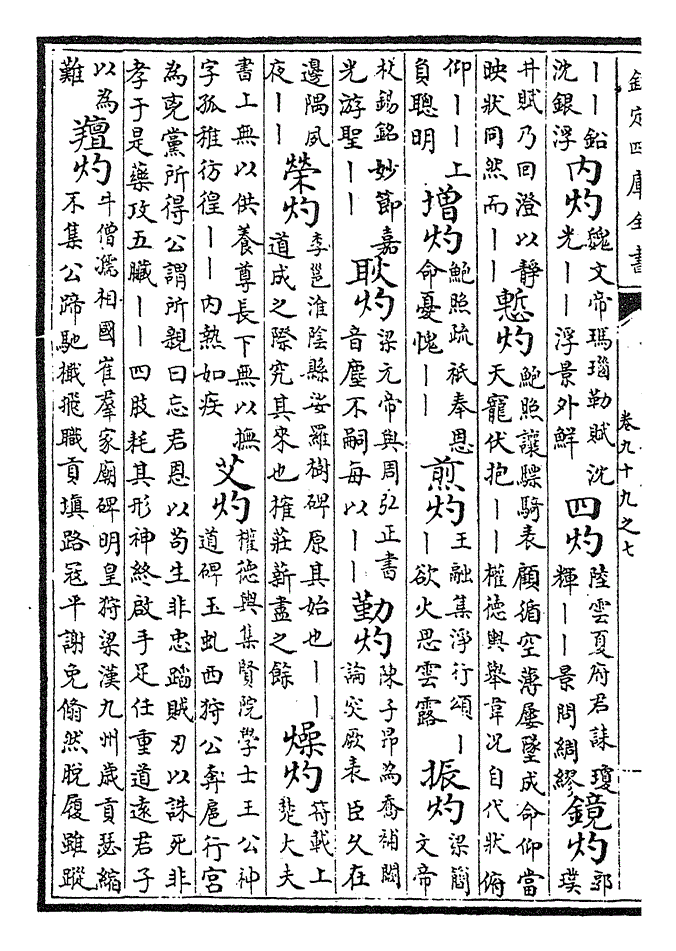 欽定四庫全書 卷九十九之七
——鉛
沈銀浮
内灼
魏文帝瑪瑙勒賦沈
光——浮景外鮮
四灼
陸雲夏府君誄瓊
輝——景問綢繆
鏡灼
郭
璞
井賦乃回澄以靜
映狀同然而——
慙灼
鮑照讓驃騎表顧循空薄屢墜成命仰當
天寵伏抱——權德輿舉韋况自代狀俯
仰——上
負聰明
增灼
鮑照疏祇奉恩
命憂愧——
煎灼
王融集淨行頌—
—欲火思雲露
振灼
梁簡
文帝
杖錫銘妙節嘉
光游聖——
耿灼
梁元帝與周弘正書
音塵不嗣每以——
勤灼
陳子昂為喬補闕
論突厥表臣久在
邊隅夙
夜——
榮灼
李邕淮陰縣娑羅樹碑原其始也——
道成之際究其來也摧莊薪盡之餘
燥灼
符載上
樊大夫
書上無以供養尊長下無以撫
字孤稚彷徨——内熱如疾
艾灼
權德輿集賢院學士王公神
道碑玉虬西狩公奔扈行宮
為兇黨所得公謂所親曰忘君恩以苟生非忠蹈賊刃以誅死非
孝于是藥攻五臟——四肢耗其形神終啟手足任重道遠君子
以為
難
羶灼
牛僧孺相國崔羣家廟碑明皇狩梁漢九州歲貢瑟縮
不集公蹄馳檝飛職貢填路冦平謝免翛然脫履雖蹤